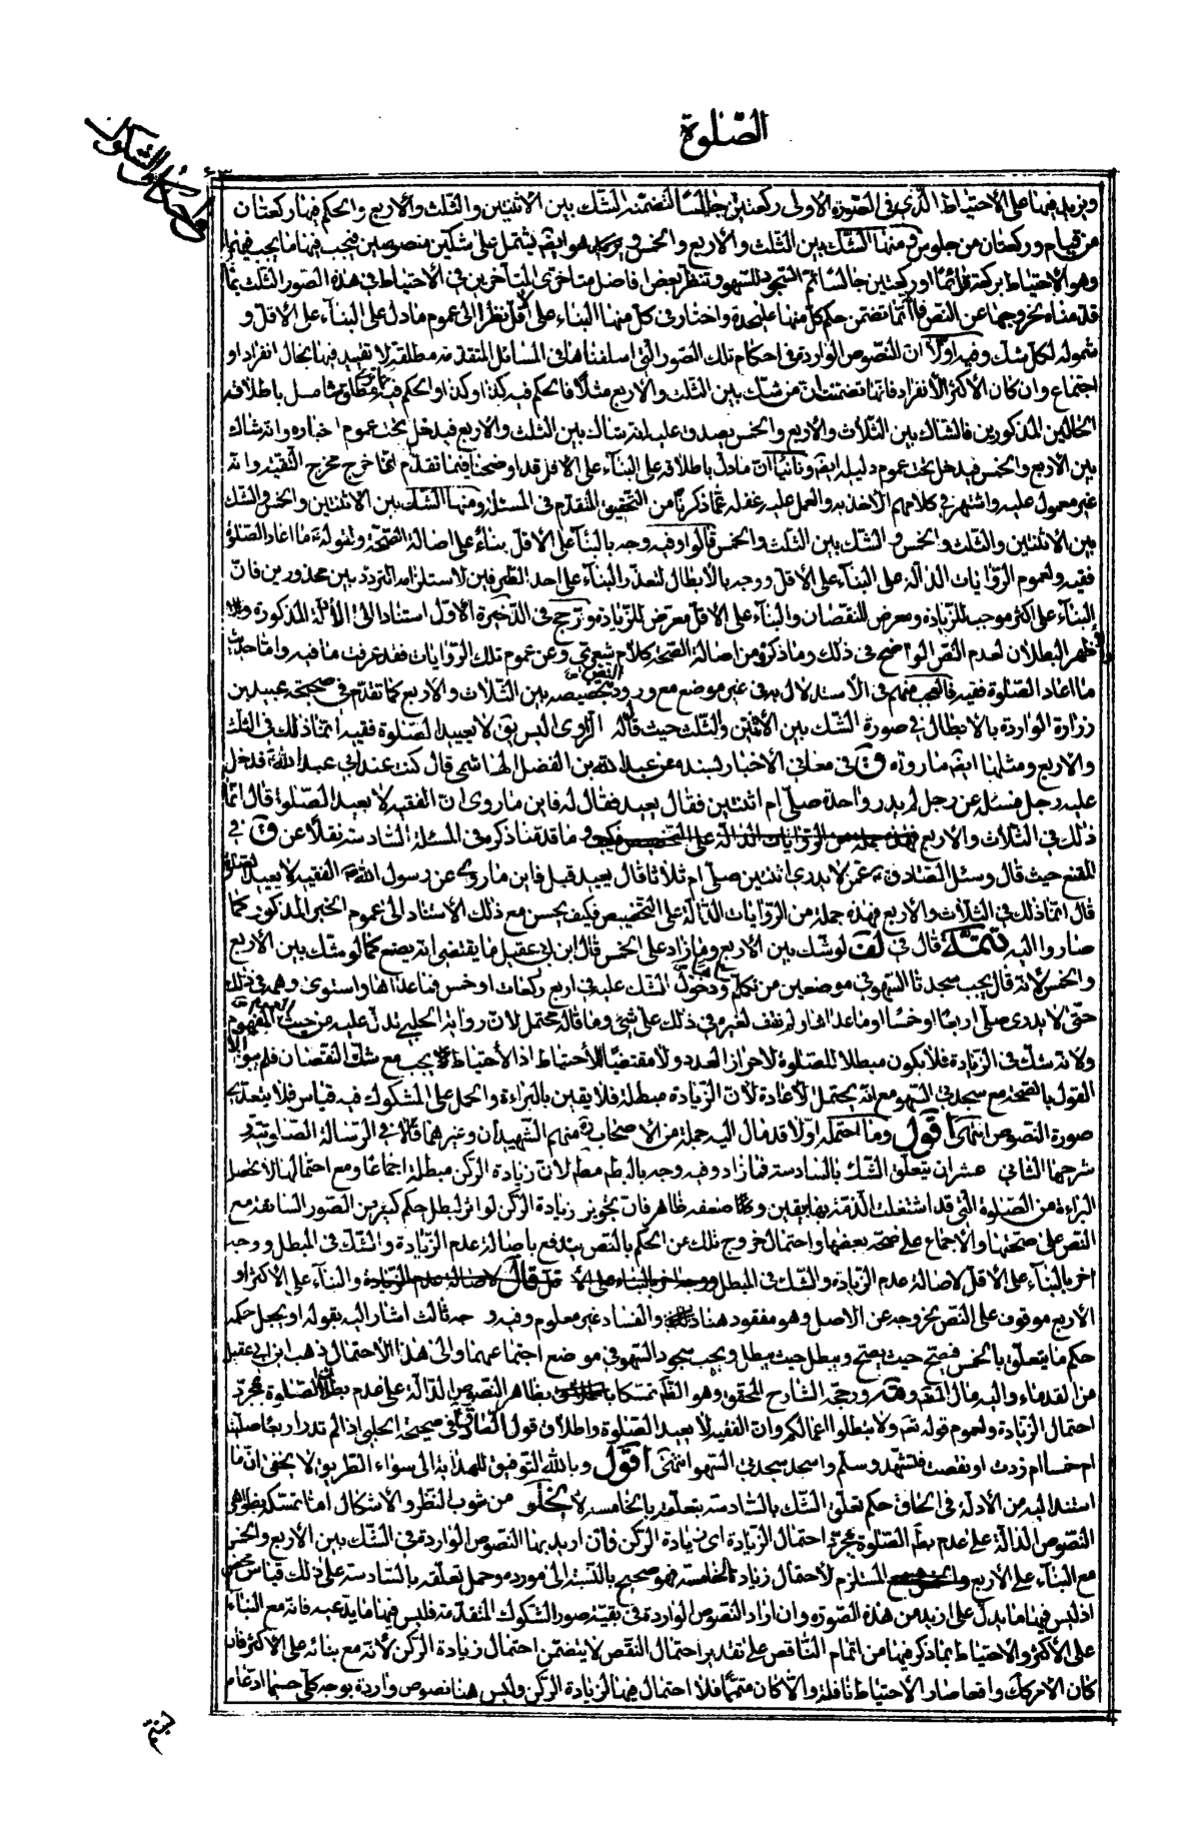 الصّلوة
ويزيد فيها على الأحتياط الّذي في الصّورة الاولى ركعتين جالسا لتضمّنه الشّك بين الاثنتين والثّلث والأربع والحكم فيها ركعتان
من قيام وركعتان من جلوس ومنها الشّك بين الثّلث والأربع والخمس وهو ايضا يشتمل على شكّين منصوصين فيجب فيها ما يجب فيهما
وهو الأحتياط بركعة قائما او ركعتين جالسا ثمّ السّجود للسّهو وتنظّر بعض افاضل متأخري المتأخرين في الأحتياط في هذه الصّور الثّلث بما
قدّمناه بخروجها عن النص فانّما تضمّن حكم كلّ منها على حدة واختار في كلّ منها البناء على الأقلّ نظرا الى عموم ما دل على البنآء على الاقلّ و
شموله لكلّ شك وفيه اوّلا انّ النّصوص الواردة في احكام تلك الصّور التي اسلفناها في المسائل المتقدّمة مطلقة لا تقييد فيها بحال انفراد او
اجتماع وان كان الأكثر الأنفراد فانّها تضمّنت ان من شكّ بين الثلث والاربع مثلا فالحكم فيه كذا وكذا والحكم فيه مطلق شامل باطلاقه
الحالين المذكورين فالشّاك بين الثّلاث والأربع والخمس يصدق عليه انّه شاك بين الثلث والأربع فيدخل تحت عموم اخباره وانه شاك
بين الأربع والخمس فيدخل تحت عموم دليله ايضا وثانيا انّ ما دلّ باطلاقه على البنآء على الاقل قد اوضحنا فيما تقدّم انّما خرج مخرج التّقيّة وانّه
غير معمول عليه واشتهر في كلامهم الأخذ به والعمل عليه غفلة عمّا ذكرناه من التّحقيق المتقدّم في المسئلة ومنها الشّك بين الاثنتين والخمس والشّك
بين الاثنتين والثّلث والخمس والشّك بين الثّلث والخمس قالوا وفيه وجه بالبنآء على الاقلّ بناءً على اصالة الصّحّة ولقوله ما اعاد الصّلوة
فقيه ولعموم الرّوايات الدّالّة على البنآء على الاقلّ ووجه بالأبطال لتعذّر البنآء على احد الطّرفين لاستلزامه التردّد بين محذورين فانّ
البنآء على اكثر موجب للزّيادة ومعرض للنقصان والبنآء على الاقلّ معرض للزّيادة ورجّح في الذّخيرة الأوّل استنادا الى الأدلّة المذكورة
ظهر البطلان لعدم النّص الواضح في ذلك وما ذكروه من اصالة الصّحّة كلام شعري وعن عموم تلك الرّوايات فقد عرفت ما فيه وامّا حديث
ما اعاد الصّلوة فقيه فالعجب منهم في الأستدلال به في غير موضع مع ورود تخصيصه بين الثّلاث والأربع كما تقدّم في صحيحة عبيد بن
زرارة الواردة بالابطال في صورة الشّك بين الأثنتين والثّلث حيث قال له الرّاوي اليس يق لا يعيد الصّلوة فقيه انّما ذلك في الثلث
والأربع ومثلها ايضا ما رواه ق في معاني الأخبار بسنده عن عبد الله بن الفضل الهاشمي قال كنت عند ابي عبد الله فدخل
عليه رجل فسئله عن رجل لم يدر واحدة صلّى ام اثنتين فقال يعيد فقال له فاين ما روي انّ الفقيه لا يعيد الصّلوة قال انّما
ذلك في الثلاث والأربع وما قدّمنا ذكره في المسئلة السّادسة نقلاً عن ق في
المقنع حيث قال وسئل الصّادق عمّن لا يدري اثنتين صلّى ام ثلاثا قال يعيد قيل فاين ما روي عن رسول الله الفقيه لا يعيد الصّلوة
قال انّما ذلك في الثّلاث والأربع فهذه جملة من الرّوايات الدّالّة على التخصيص فكيف يحسن مع ذلك الأستناد الى عموم الخبر المذكور كما
صاروا اليه تتمّة قال في لف لو شك بين الأربع وما زاد على الخمس قال ابن ابي عقيل ما يقتضي انّه يصنع كما لو شك بين الأربع
والخمس لانّه قال يجب سجدتا السّهو في موضعين من تكلّم ودخول الشّك عليه في اربع ركعات او خمس فما عداها واستوى وهمه في ذلك
حتّى لا يدري صلّى اربعا او خمسا او ما عداها ولم نقف لغيره في ذلك على شئ وما قاله محتمل لانّ رواية الحلبي تدلّ عليه من حيث المفهوم
ولانّه شكّ في الزّيادة فلا يكون مبطلا للصّلوة لاحراز العدد ولا مقتضيا للأحتياط اذ الأحتياط يجب مع شك النّقصان فلم يبق الّا
القول بالصّحّة مع سجدتي السّهو مع انّه يحتمل الأعادة لأن الزّيادة مبطلة فلا يقين بالبراءة والحمل على المشكوك فيه قياس فلا يتعدّى
صورة النّصوص انتهى أقول وما احتمله اوّلا قد مال اليه جملة من الاصحاب منهم الشّهيدان وغيرهما قالا في الرّسالة الصّلوتيّة و
شرحها الثاني عشر ان يتعلّق الشّك بالسّادسة فما زاد وفيه وجه بالبطلان مطلقا لأن زيادة الرّكن مبطلة اجماعا ومع احتمالها لا يحصل
البراءة من الصّلوة الّتي قد اشتغلت الذّمّة بها بيقين وضعفه ظاهر فانّ تجويز زيادة الرّكن لو اثّر لبطل حكم كثير من الصّور السّابقة مع
النّص على صحّتها والاجماع على صحّة بعضها واحتمال خروج تلك عن الحكم بالنّص يندفع باصالة عدم الزّيادة والشّك في المبطل ووجه
اخر بالبنآء على الاقلّ لاصالة عدم الزّيادة والشّك في المبطل والبنآء على الاكثر او
الأربع موقوف على النّص بخروجه عن الاصل وهو مفقود هنا والفساد غير معلوم وفيه وجه ثالث اشار اليه بقوله او يجعل حكمه
حكم ما يتعلّق بالخمس فيصحّ حيث يصحّ ويبطل حيث يبطل ويجب سجود السّهو في موضع اجتماعهما والى هذا الأحتمال ذهب ابن ابي عقيل
من القدماء واليه مال المصنف ورجّحه الشّارح المحقق وهو الظّاهر تمسّكا بظاهر النّصوص الدّالّة على عدم بطلان الصّلوة بمجرّد
احتمال الزّيادة ولعموم قوله تعالى ولا تبطلوا اعمالكم وانّ الفقيه لا يعيد الصّلوة واطلاق قول الصّادق في صحيحة الحلبي اذا لم تدر اربعا صلّيت
ام خمسا ام زدت او نقصت فتشهّد وسلّم واسجد سجدتي السّهو انتهى أقول وبالله التوفيق للهداية الى سواء الطّريق لا يخفى انّ ما
استند اليه من الأدلّة في الحاق حكم تعلّق الشّك بالسّادسة بتعلّقه بالخامسة لا يخلو من شوب النّظر والاشكال امّا تمسّكه بظواهر
النّصوص الدالّة على عدم بطلان الصّلوة بمجرّد احتمال الزّيادة اي زيادة الرّكن فان اريد بها النّصوص الواردة في الشّك بين الأربع والخمس
مع البنآء على الأربع المستلزم لأحتمال زيادة الخامسة فهو صحيح بالنّسبة الى مورده وحمل تعلّقه بالسّادسة على ذلك قياس محض
اذ ليس فيها ما يدلّ على ازيد من هذه الصّورة وان اراد النّصوص الواردة في بقيّة صور الشّكوك المتقدّمة فليس فيها ما يدّعيه فانّه مع البنآء
على الأكثر والاحتياط بما ذكر فيها من اتمام النّاقص على تقدير احتمال النّقص لا يتضمّن احتمال زيادة الرّكن لأنّه مع بنائه على الأكثر فان
كان الأمر كك واقعا صار الأحتياط نافلة والّا كان متمّما فلا احتمال فيها لزيادة الرّكن وليس هنا نصوص واردة بوجه كلّي حسبما ادّعاه